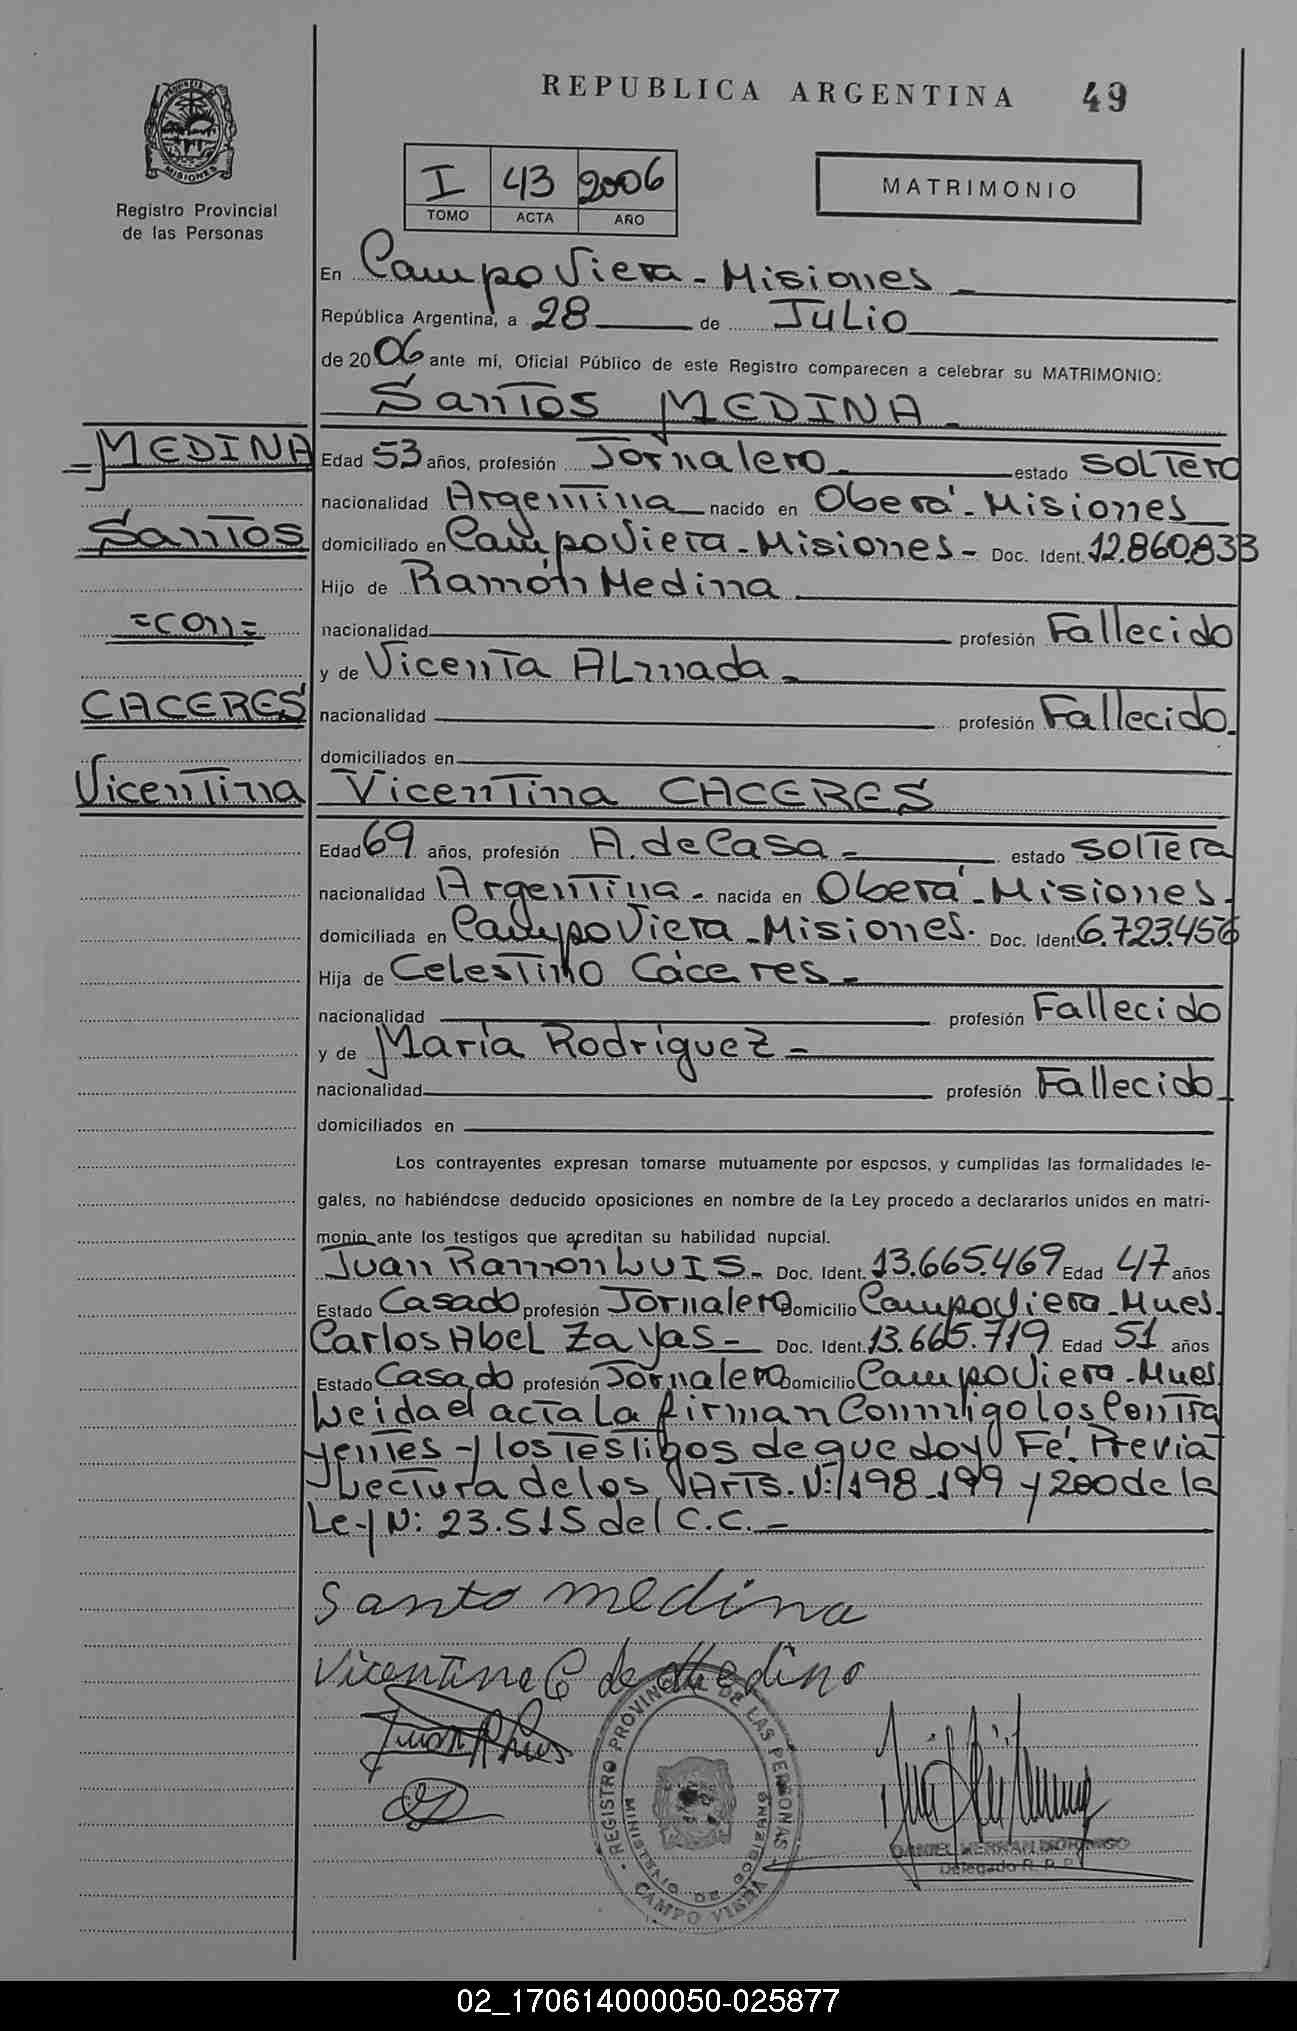 REPUBLICA ARGENTINA 49
PROVINCIA DE MISIONES
Registro Provincial
de las Personas
I 43 2006
TOMO ACTA AÑO
MATRIMONIO
En Campo Viera - Misiones -
República Argentina, a 28 de Julio
de 2006 ante mí, Oficial Público de este Registro comparecen a celebrar su MATRIMONIO:
Santos MEDINA -
= MEDINA
Santos
=con=
CACERES
Vicentina
Edad 53 años, profesión Jornalero - estado Soltero
nacionalidad Argentina nacido en Oberá - Misiones
domiciliado en Campo Viera - Misiones - Doc. Ident. 12.860.833
Hijo de Ramón Medina
nacionalidad profesión Fallecido
y de Vicenta ALmada -
nacionalidad profesión Fallecido -
domiciliados en
Vicentina CACERES
Edad 69 años, profesión A. de Casa - estado Soltera
nacionalidad Argentina - nacida en Oberá - Misiones -
domiciliada en Campo Viera - Misiones - Doc. Ident. 6.723.456
Hija de Celestino Cáceres -
nacionalidad profesión Fallecido
y de María Rodríguez -
nacionalidad profesión Fallecido -
domiciliados en
Los contrayentes expresan tomarse mutuamente por esposos, y cumplidas las formalidades le-
gales, no habiéndose deducido oposiciones en nombre de la Ley procedo a declararlos unidos en matri-
monio ante los testigos que acreditan su habilidad nupcial.
Juan Ramón LUIS - Doc. Ident. 13.665.469 Edad 47 años
Estado Casado profesión Jornalero Domicilio Campo Viera - Mnes.
Carlos Abel Zayas - Doc. Ident. 13.665.719 Edad 51 años
Estado Casado profesión Jornalero Domicilio Campo Viera - Mnes
Leida el acta La firman Conmigo los Contra
yentes y los Testigos de que doy Fé. Previa
Lectura de los Arts. N: 198 - 199 y 200 de la
Ley N: 23.515 del C.C. -
Santo medina
Vicentina C de Medina
Juan R Luis
REGISTRO PROVINCIAL DE LAS PERSONAS
MINISTERIO DE GOBIERNO
CAMPO VIERA
DANIEL HERNAN
Delegado R. P. P.
02_170614000050-025877